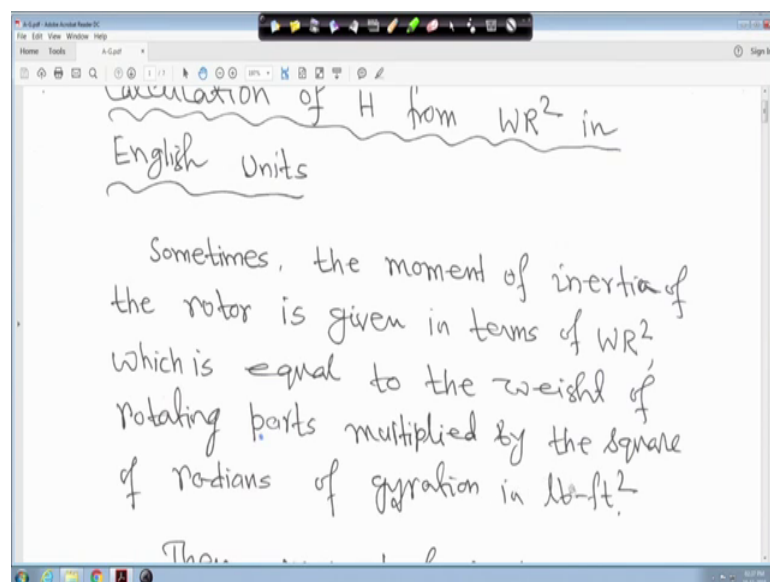 A-G.pdf - Adobe Acrobat Reader DC
File Edit View Window Help
Home Tools A-G.pdf
Sign In
Calculation of H from WR² in
English Units
Sometimes, the moment of inertia of
the rotor is given in terms of WR²,
which is equal to the weight of
rotating parts multiplied by the square
of radians of gyration in lb-ft².